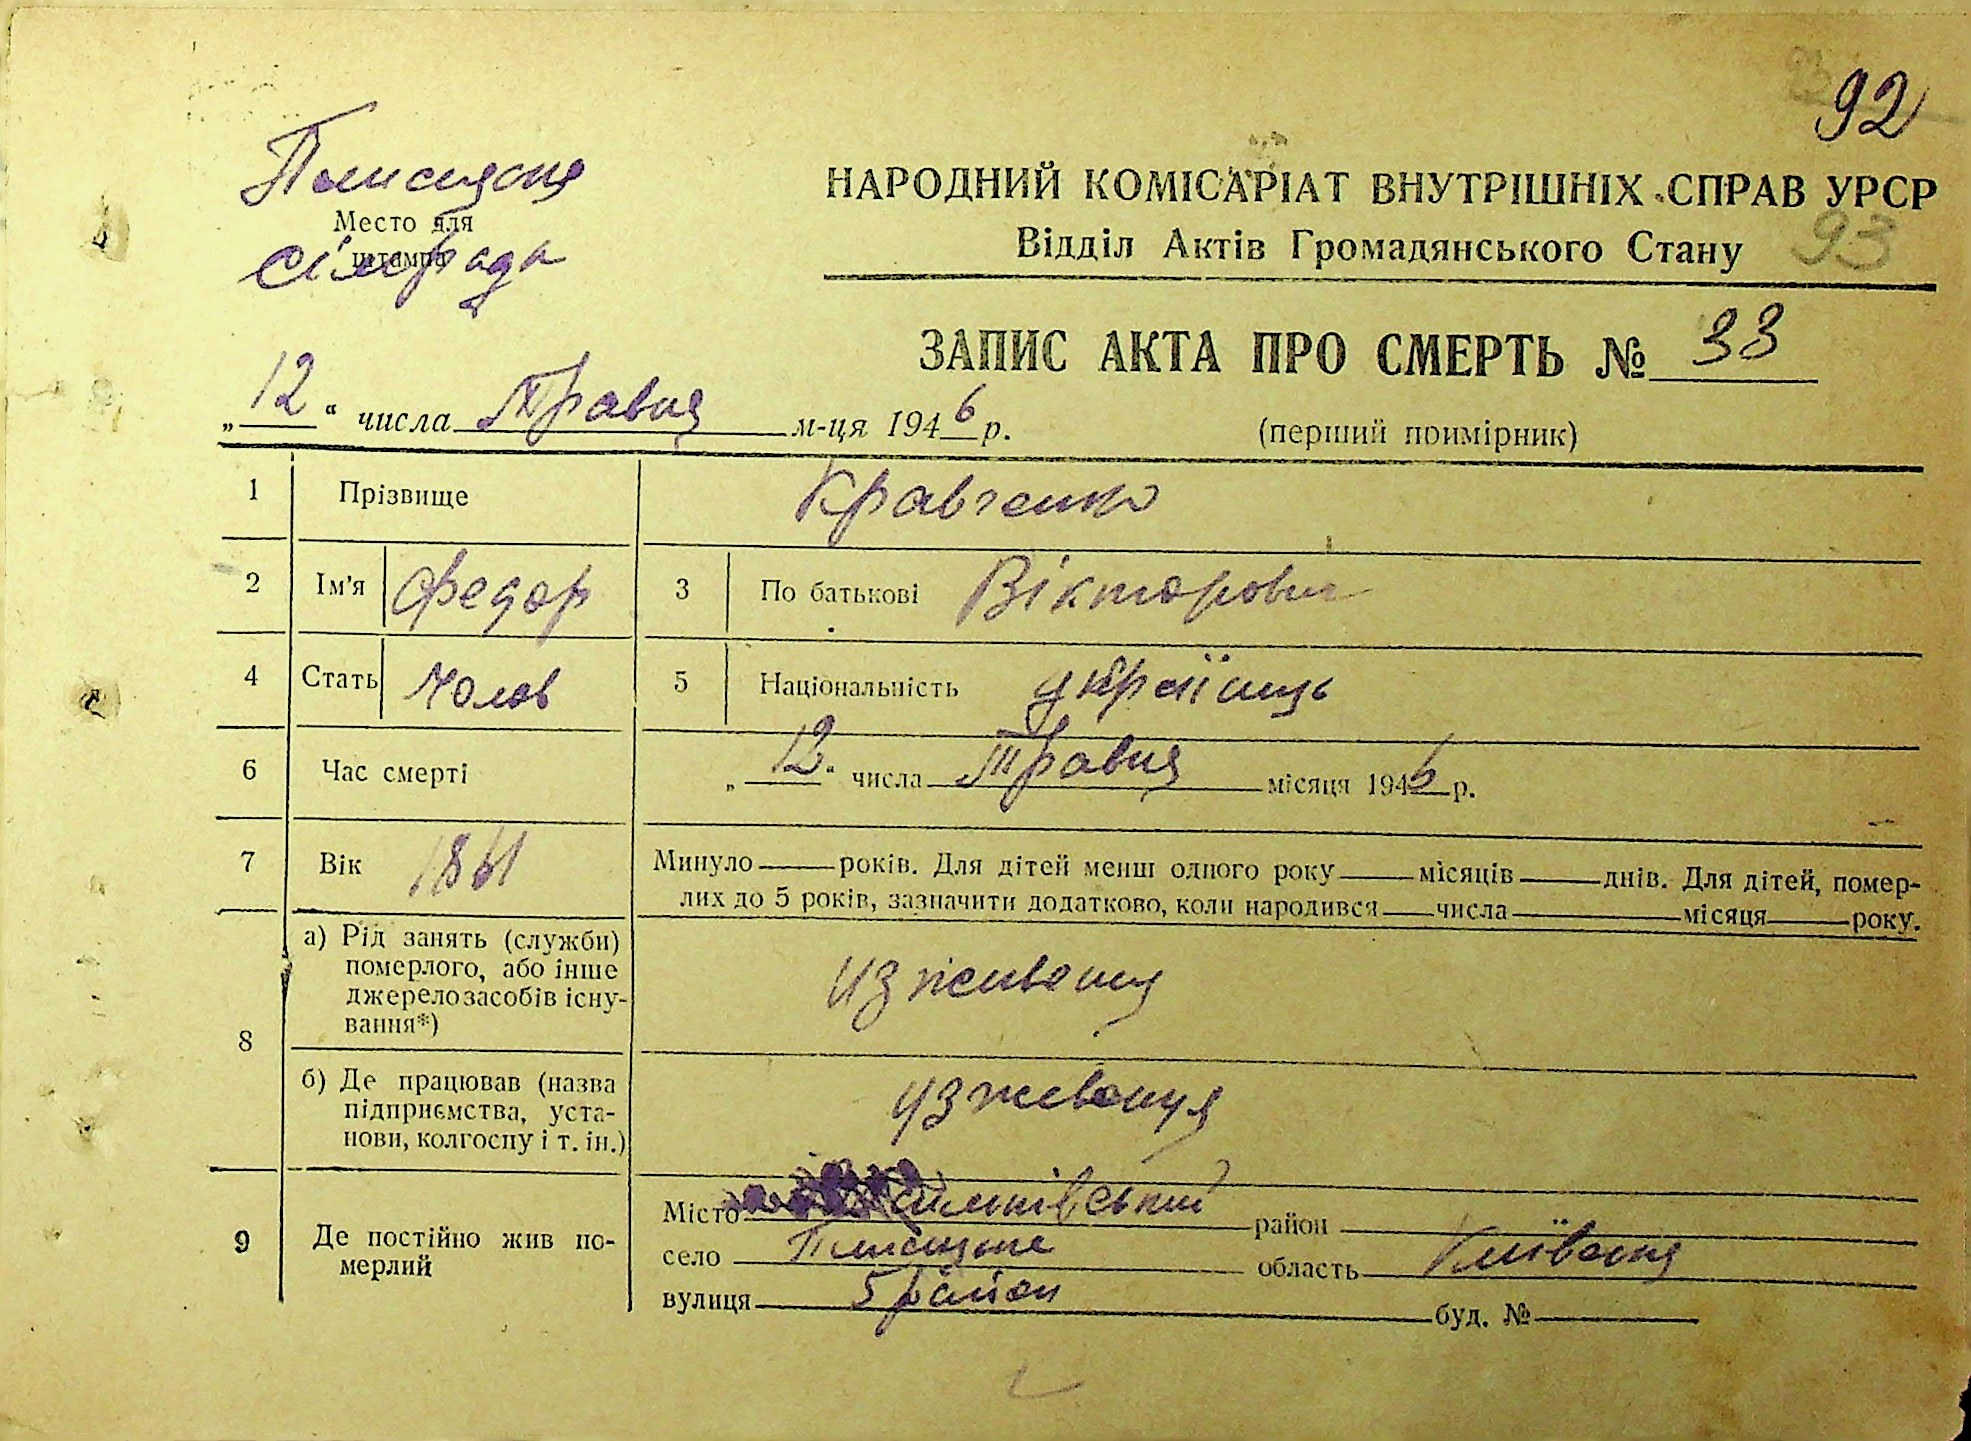 92
Плисецька
Место для
штампа
сільрада
НАРОДНИЙ КОМІСАРІАТ ВНУТРІШНІХ СПРАВ УРСР
Відділ Актів Громадянського Стану
93
ЗАПИС АКТА ПРО СМЕРТЬ № 33
„12“ числа Травня м-ця 1946 р.
(перший примірник)
1 Прізвище Кравченко
2 Ім'я Федор 3 По батькові Вікторович
4 Стать Чолов 5 Національність українець
6 Час смерті „12“ числа Травня місяця 1946 р.
7 Вік 1861 Минуло років. Для дітей менш одного року місяців днів. Для дітей, помер-
лих до 5 років, зазначити додатково, коли народився числа місяця року.
8 а) Рід занять (служби)
померлого, або інше
джерело засобів існу-
вання*)
изживення
б) Де працював (назва
підприємства, уста-
нови, колгоспу і т. ін.)
изживенця
9 Де постійно жив по-
мерлий
Місто район
село Плисецьке область Київська
вулиця 5 район буд. №